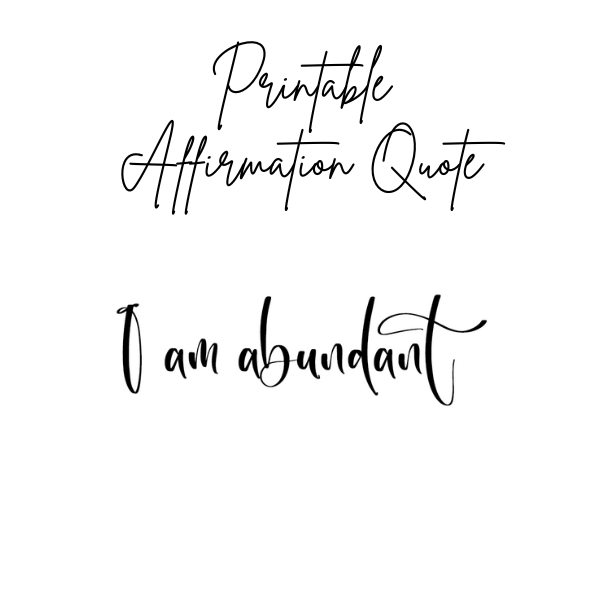 Printable
Affirmation Quote
I am abundant